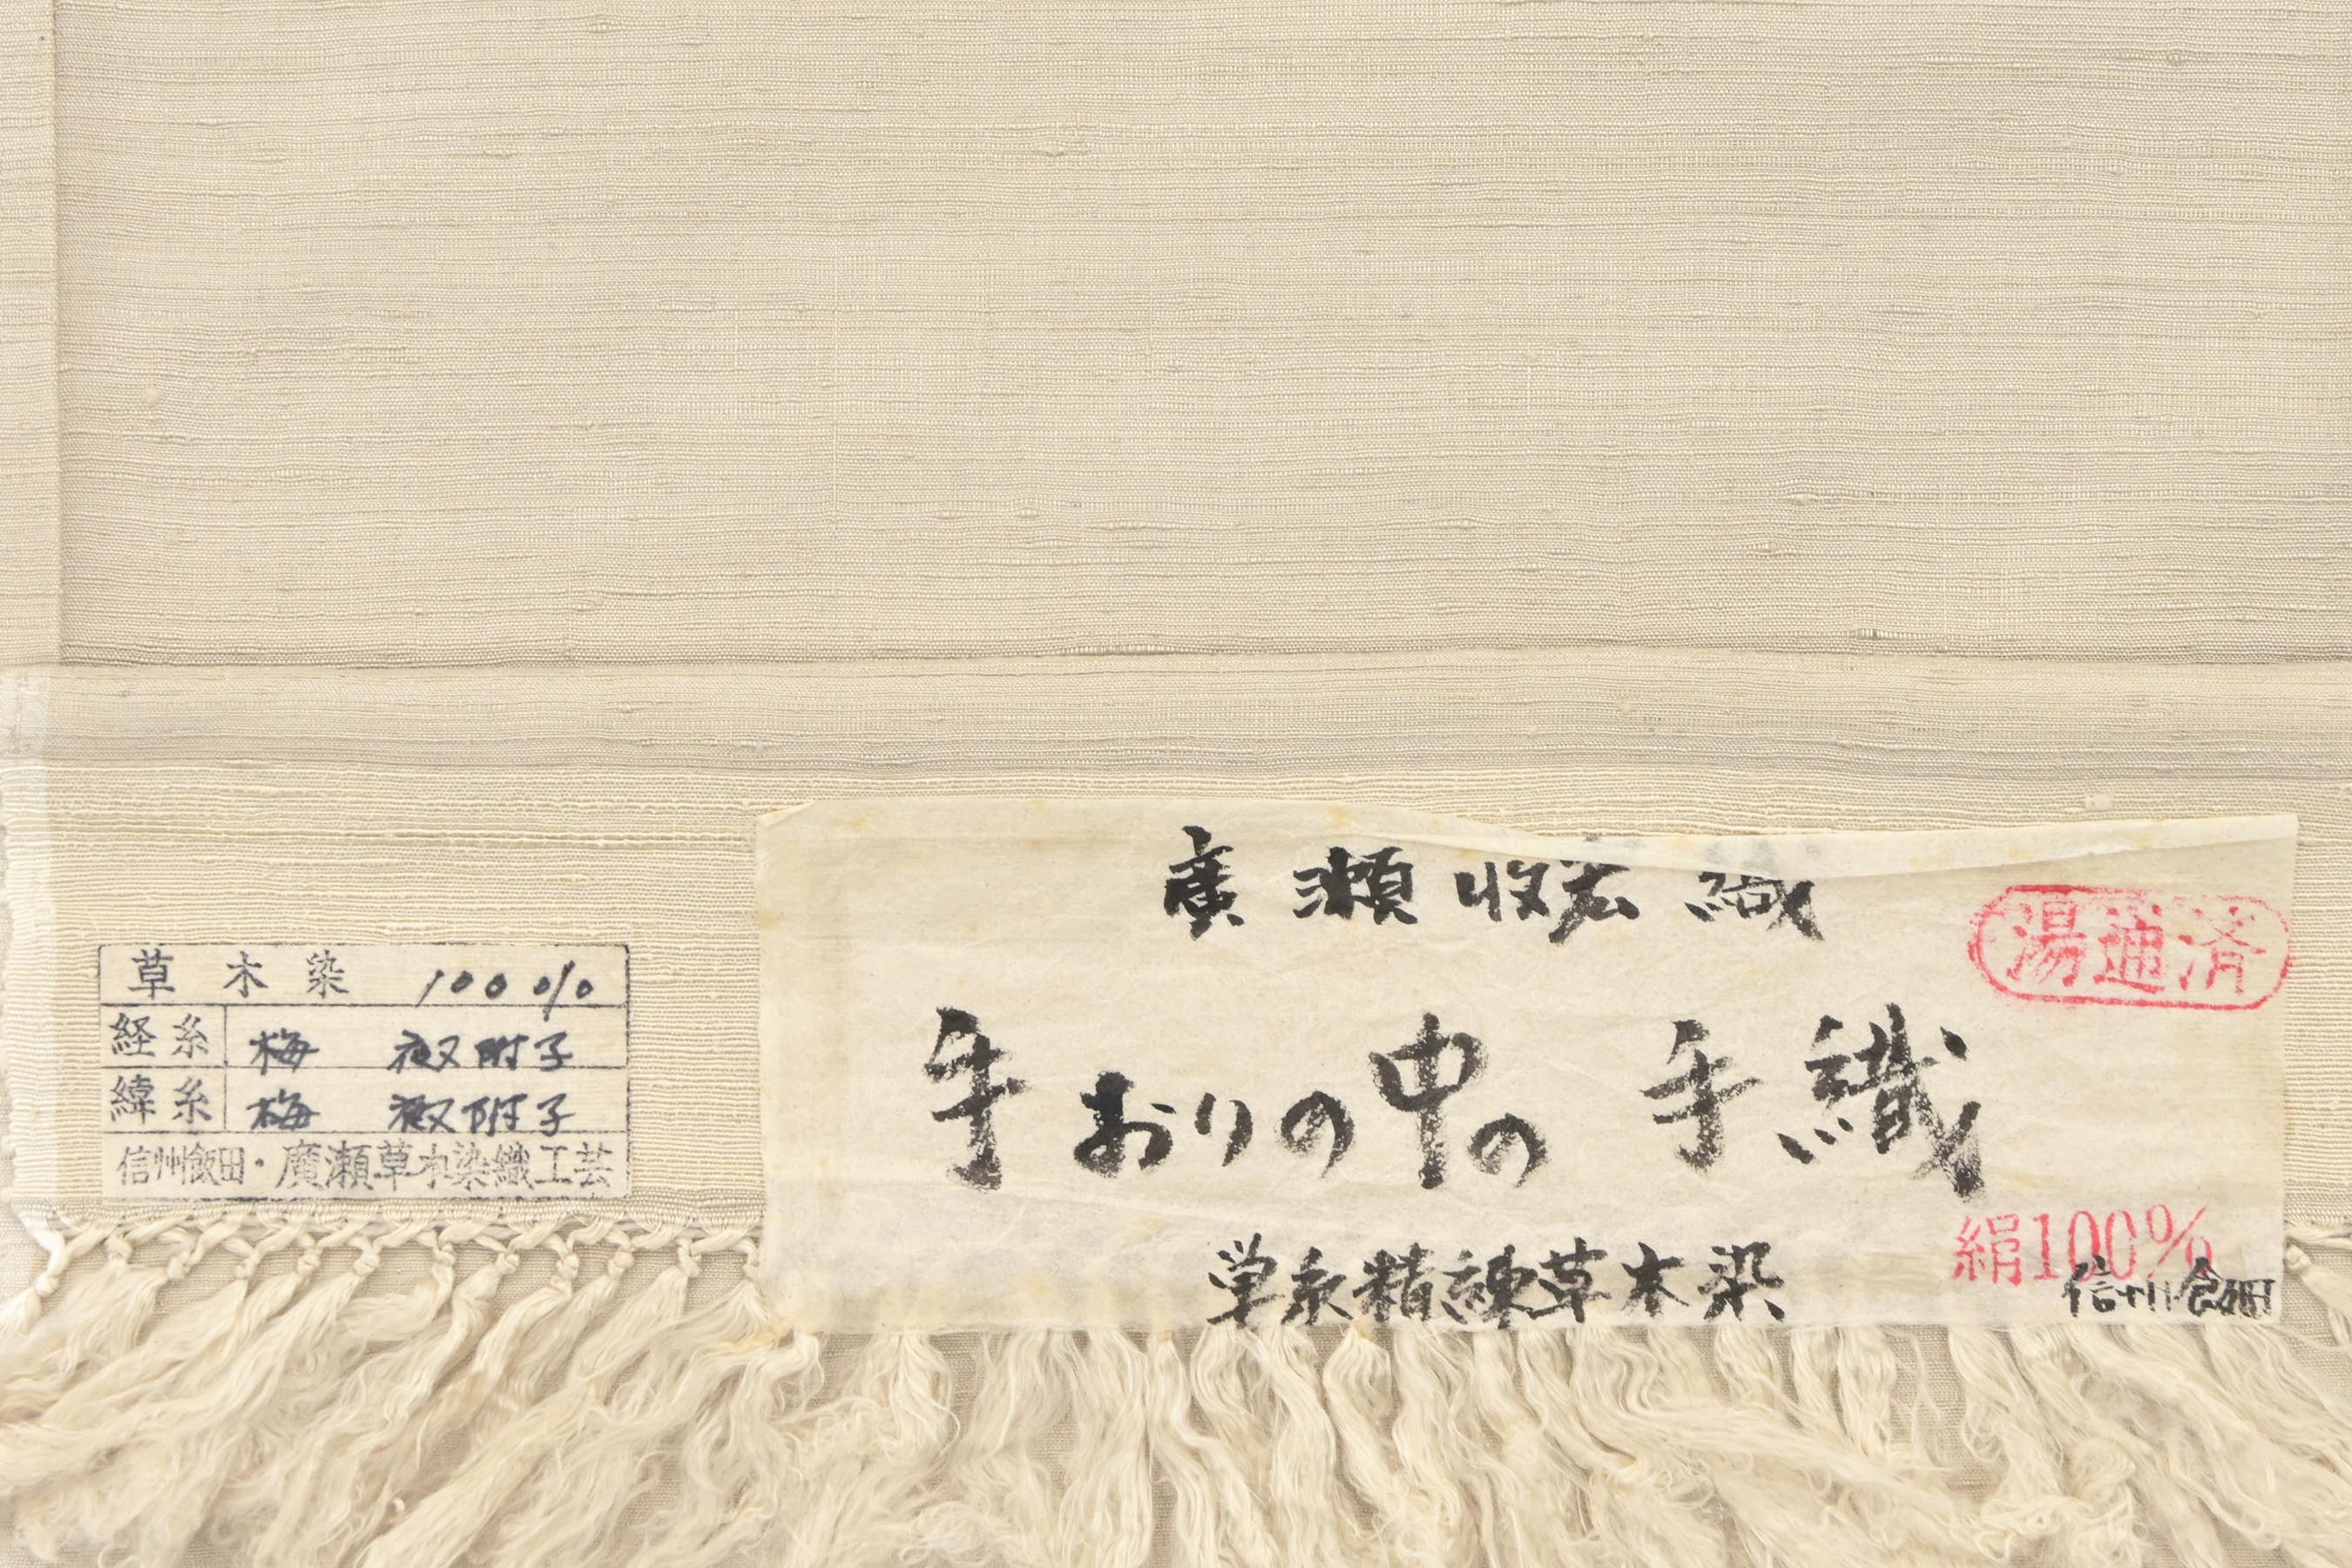 草木染 100%
経糸 梅 夜叉附子
緯糸 梅 夜叉附子
信州飯田・廣瀬草木染織工芸
廣瀬 收宏 織
湯通済
手おりの中の 手織
単糸精練草木染
絹100%
信州飯田